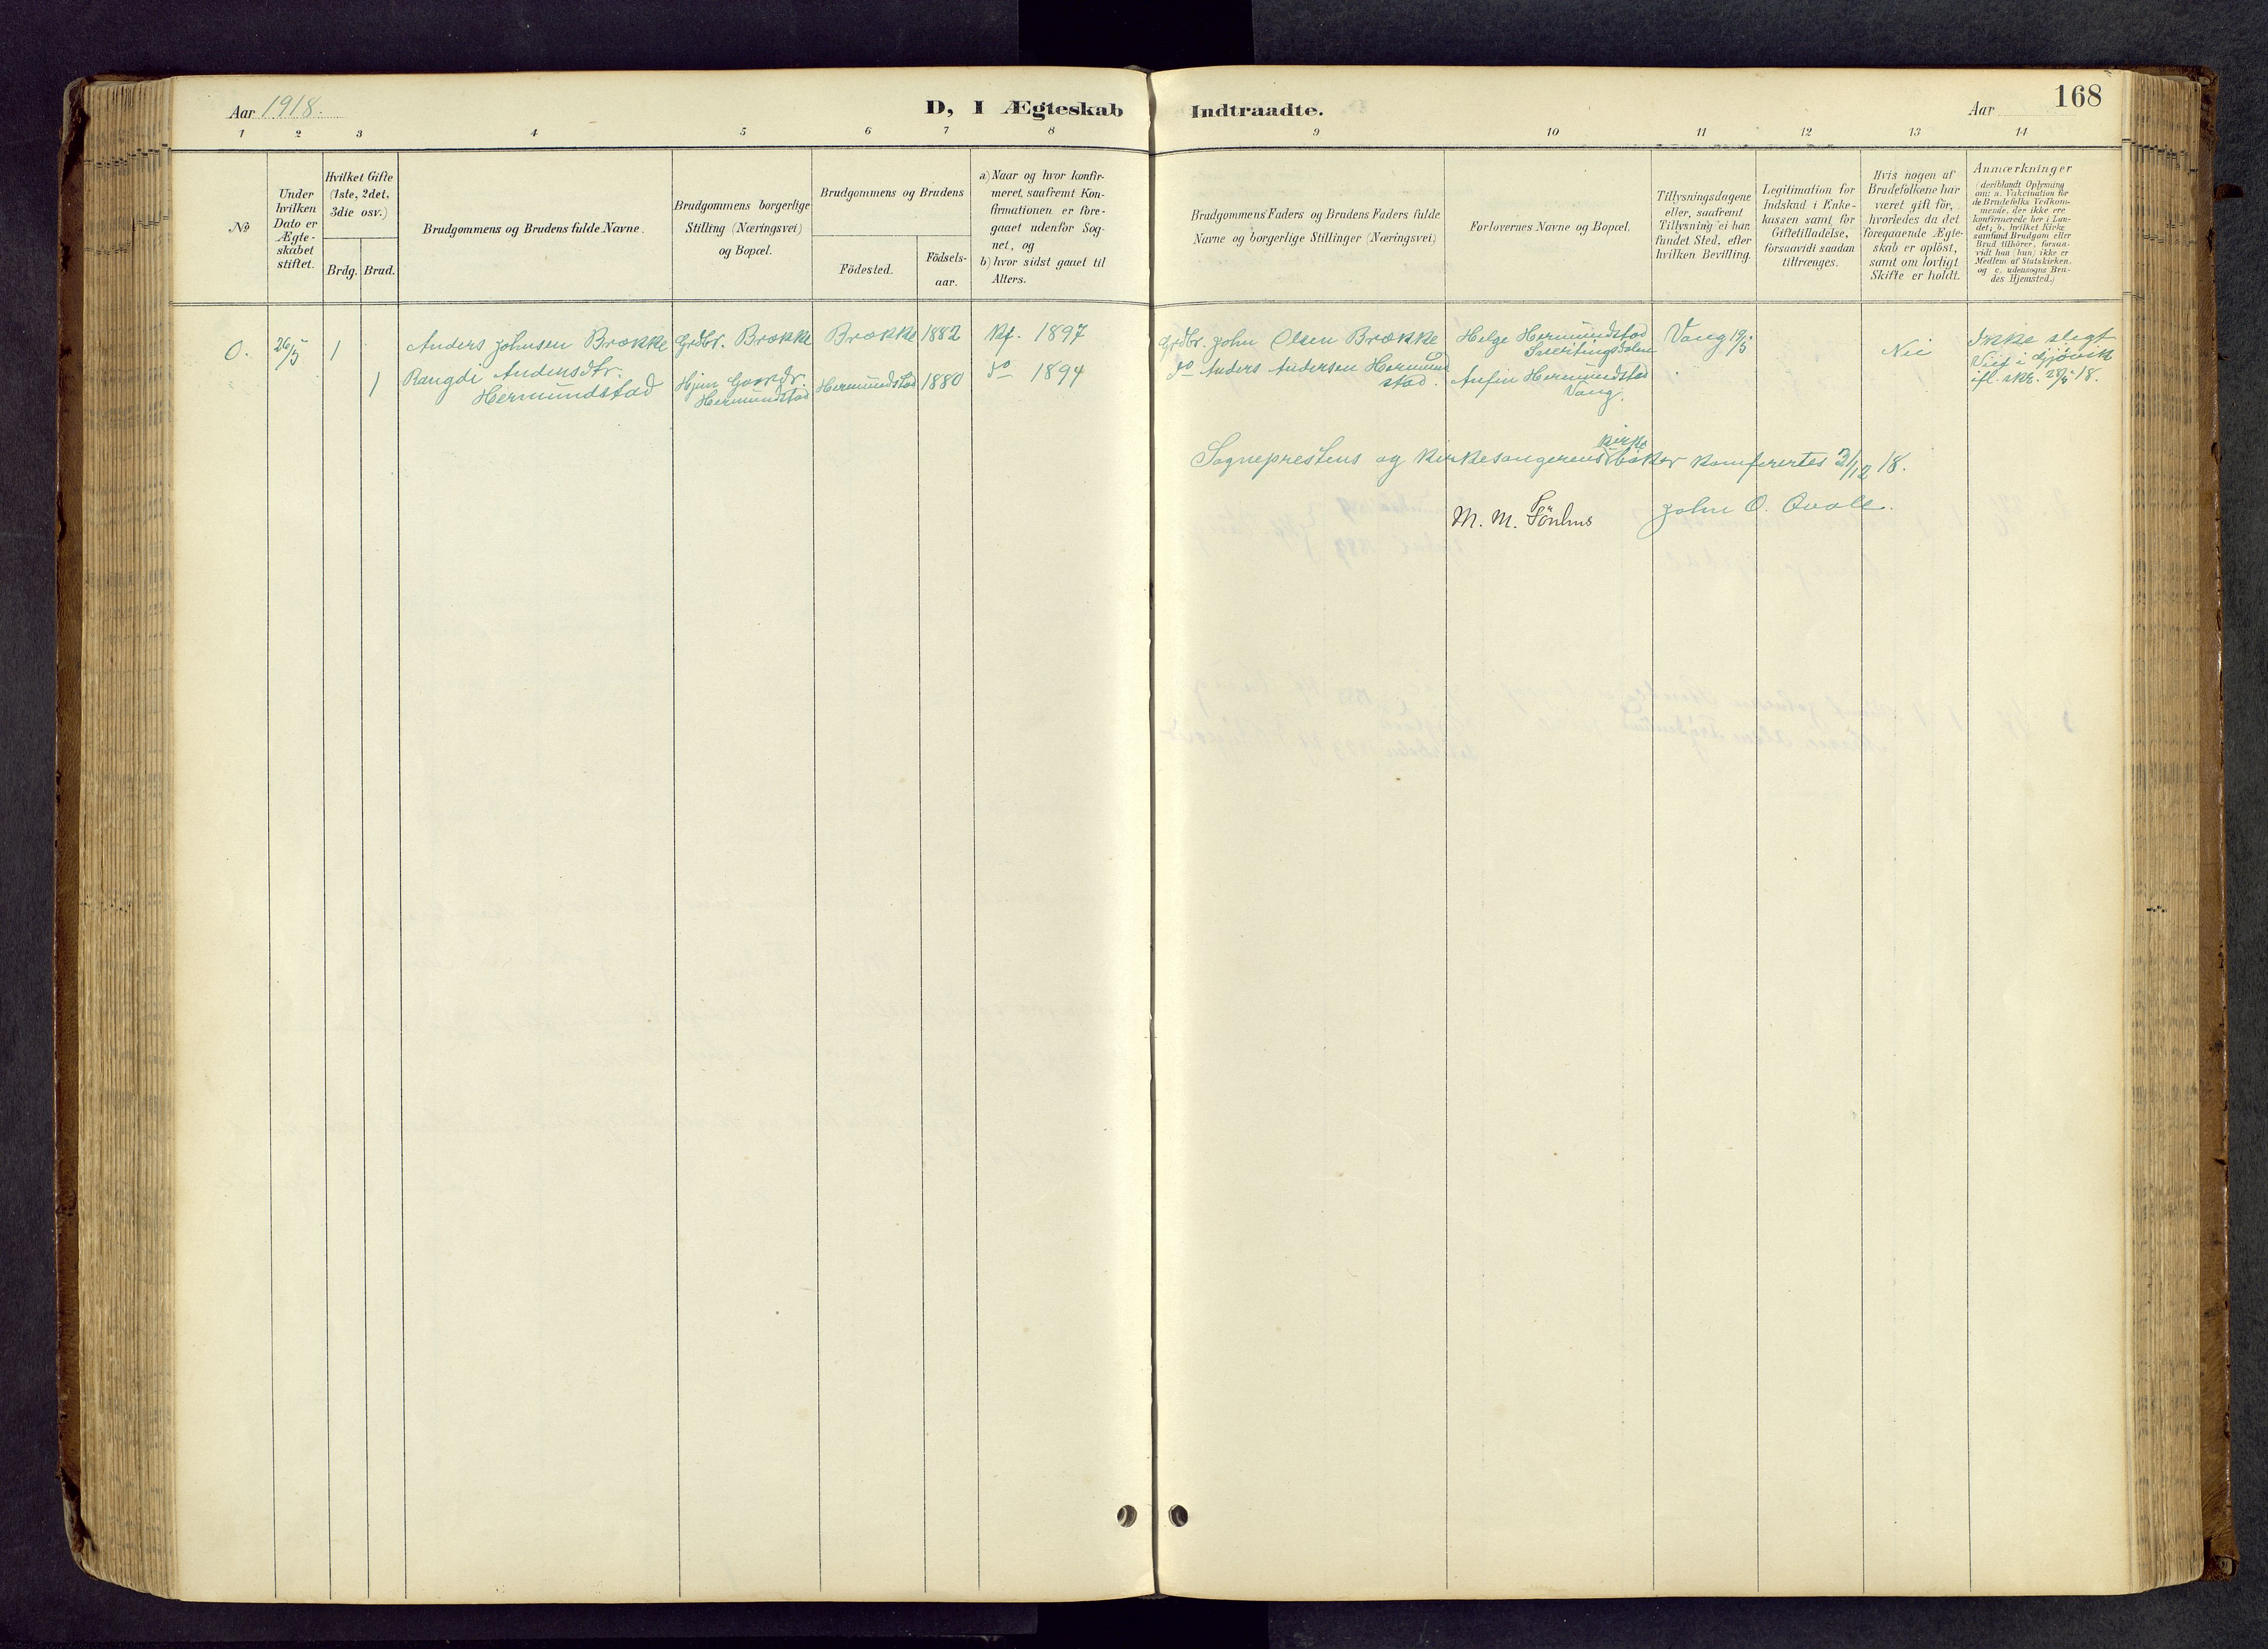 Aar 1918.
D, I Ægteskab Indtraadte.
Aar
168
1 2 3 4 5 6 7 8 9 10 11 12 13 14
No
Under
hvilken
Dato er
Ægte-
skabet
stiftet.
Hvilket Gifte
(1ste, 2det,
3die osv.)
Brdg. Brud.
Brudgommens og Brudens fulde Navne.
Brudgommens borgerlige
Stilling (Næringsvei)
og Bopæl.
Brudgommens og Brudens
Födested.
Födsels-
aar.
a) Naar og hvor konfir-
meret, saafremt Kon-
firmationen er fore-
gaaet udenfor Sog-
net, og
b) hvor sidst gaaet til
Alters.
Brudgommens Faders og Brudens Faders fulde
Navne og borgerlige Stillinger (Næringsvei)
Forlovernes Navne og Bopæl.
Tillysningsdagene
eller, saafremt
Tillysning ei har
fundet Sted, efter
hvilken Bevilling.
Legitimation for
Indskud i Enke-
kassen samt for
Giftetilladelse,
forsaavidt saadan
tiltrænges.
Hvis nogen af
Brudefolkene har
været gift för,
hvorledes da det
foregaaende Ægte-
skab er oplöst,
samt om lovligt
Skifte er holdt.
Anmærkninger
(deriblandt Oplysning
om: a. Vakcination for
de Brudefolks Vedkom-
mende, der ikke ere
konfirmerede her i Lan-
det; b. hvilket Kirke
samfund Brudgom eller
Brud tilhörer, forsaa-
vidt han (hun) ikke er
Medlem af Statskirken,
og c. udensogns Bru-
des Hjemsted.)
0. 26/5 1 Anders Johnsen Brække Grdbr. Brække Brække 1882 Kf. 1897
1 Rangdi Andersdtr.
Hermundstad
Hjm Gaardr.
Hermundstad
Hermundstad 1880 do 1894
Grdbr. John Olsen Brække
do Anders Andersen Hermund
stad.
Helge Hermundstad
Anfin Hermundstad
Vang.
Vang 19/5
Nei
Ikke slegt
Viet i Gjøvik
ifl. skr. 28/5 18.
Sogneprestens og kirkesangerens kirkebøker konfirertes 3/12 18.
M. M. Sönhus
John O. Qvale.